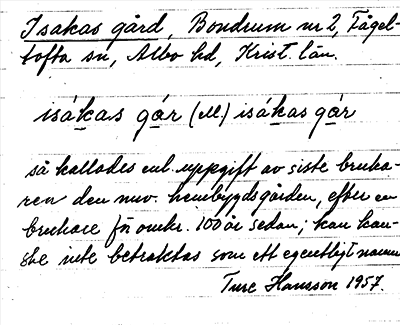 Isakas gård, Bondrum nr 2, Fågel-
tofta sn, Albo hd, Krist. län.
isákas gár (M.) isákas gár
så kallades enl. uppgift av siste bruka-
ren den nuv. hembygdsgården, efter en
brukare för omkr. 100 år sedan; kan kan-
ske inte betraktas som ett egentligt namn
Ture Hansson 1957.